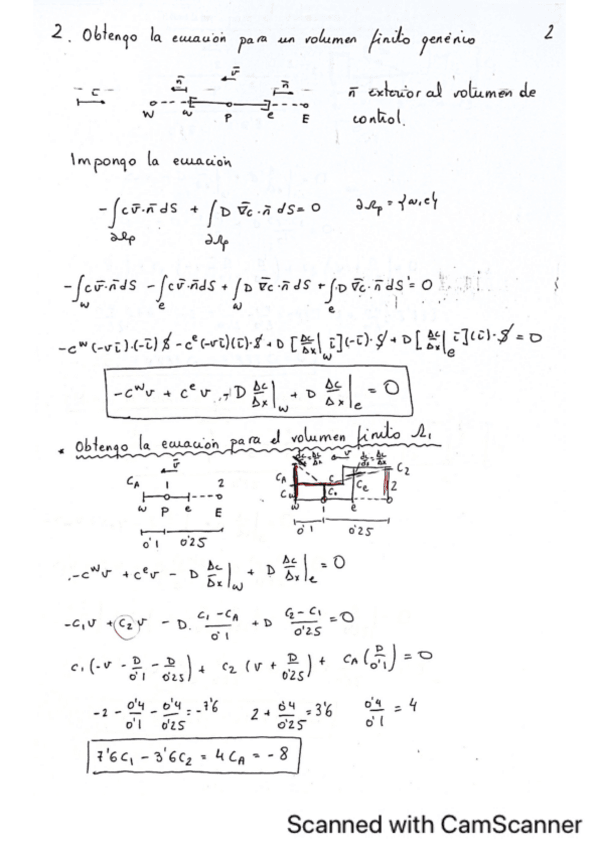 2. Obtengo la ecuación para un volumen finito genérico 2
n̄ v̄ n̄
c̄ W w P e E
n̄ exterior al volumen de
control.
Impongo la ecuación
-∫ c v̄·n̄ dS + ∫ D ∇̄c·n̄ dS = 0 ∂Ωp = {w,e}
∂Ωp ∂Ωp
-∫w c v̄·n̄ dS - ∫e c v̄·n̄ dS + ∫w D ∇̄c·n̄ dS + ∫e D ∇̄c·n̄ dS = 0
-c^w (-v ī)·(-ī) S - c^e (-v ī)(ī)·S + D [Δc/Δx|w ī](-ī)·S + D [Δc/Δx|e ī](ī)·S = 0
-c^w v + c^e v - D Δc/Δx|w + D Δc/Δx|e = 0
* Obtengo la ecuación para el volumen finito Ω1
v̄
CA 1 2
w P e E
0'1 0'25
CA Cw C1 Ce C2 2
w 1 e
0'1 0'25
-c^w v + c^e v - D Δc/Δx|w + D Δc/Δx|e = 0
-C1 v + C2 v - D· (C1 - CA)/0'1 + D (C2 - C1)/0'25 = 0
C1 (-v - D/0'1 - D/0'25) + C2 (v + D/0'25) + CA (D/0'1) = 0
-2 - 0'4/0'1 - 0'4/0'25 = -7'6 2 + 0'4/0'25 = 3'6 0'4/0'1 = 4
7'6 C1 - 3'6 C2 = 4 CA = -8
Scanned with CamScanner